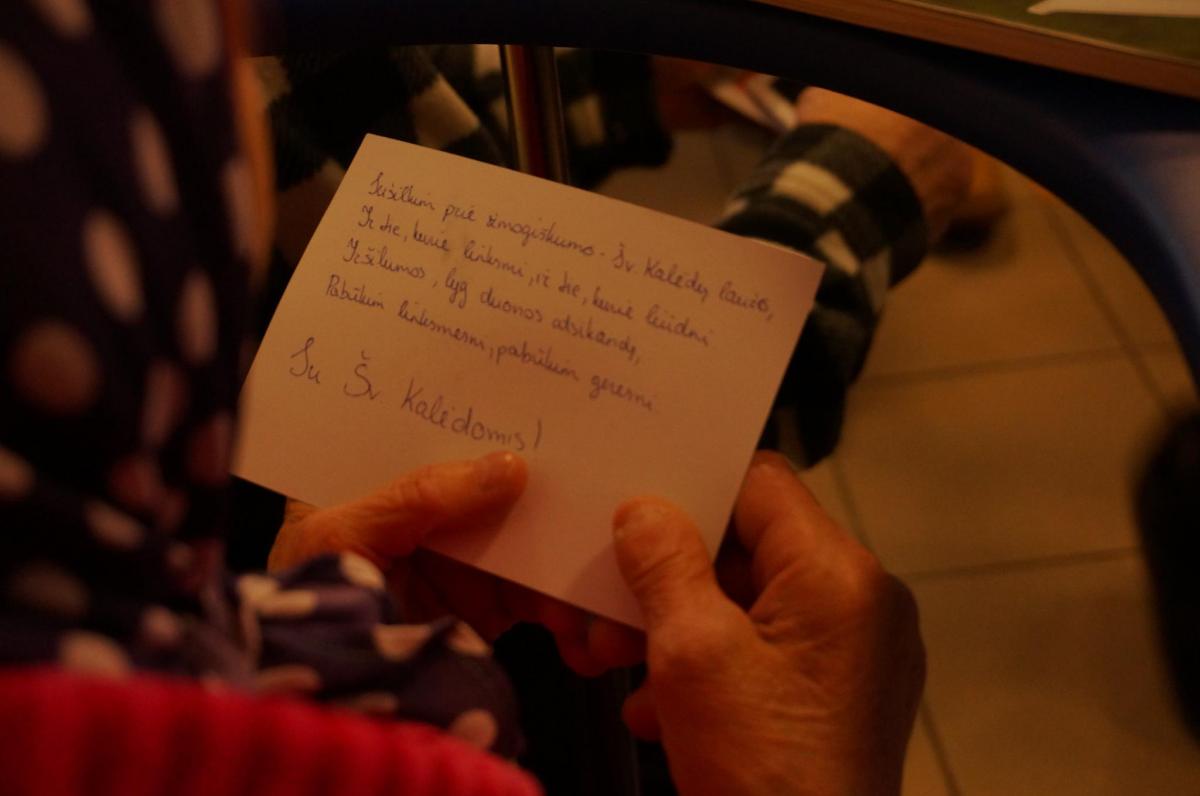 Sušilkim prie žmogiškumo - Šv. Kalėdų laužo,
Ir tie, kurie linksmi, ir tie, kurie liūdni
Ir šilumos, lyg duonos atsikandę,
Pabūkim linksmesni, pabūkim geresni
Su Šv Kalėdomis!